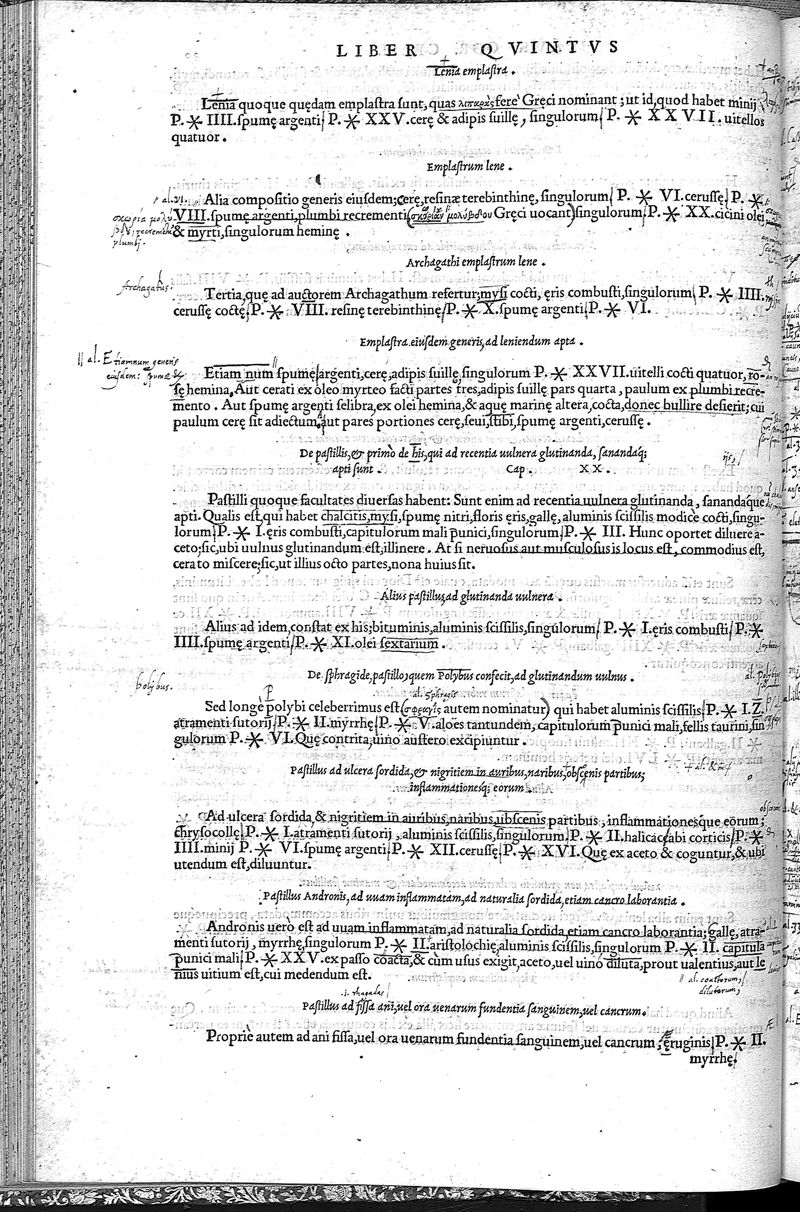 LIBER QVINTVS
Lenia emplastra.
Lenia quoque quędam emplastra sunt, quas λιπαρὰς fere Gręci nominant; ut id, quod habet minij
P. ✶ IIII. spumę argenti P. ✶ XXV. cerę & adipis suillę, singulorum P. ✶ XXVII. uitellos
quatuor.
Emplastrum lene.
al. VI.
Alia compositio generis eiusdem; cerę, resinæ terebinthinę, singulorum P. ✶ VI. cerussę P. ✶
σκωρία μολυ
VIII. spumę argenti, plumbi recrementi (σκωρίαν μολύβδου Gręci uocant) singulorum P. ✶ XX. cicini olei
plumbi.
& myrti, singulorum heminę.
Archagathi emplastrum lene.
Archagatus.
Tertia, quę ad auctorem Archagathum refertur; mysi cocti, ęris combusti, singulorum P. ✶ IIII.
cerussę coctę P. ✶ VIII. resinę terebinthinę P. ✶ X. spumę argenti P. ✶ VI.
Emplastra eiusdem generis, ad leniendum apta.
al. Etiamnum generis
eiusdem: spumæ &c
Etiam num spumę argenti, cerę, adipis suillę, singulorum P. ✶ XXVII. uitelli cocti quatuor, ro-
sę hemina. Aut cerati ex oleo myrteo facti partes tres, adipis suillę pars quarta, paulum ex plumbi recre-
mento. Aut spumę argenti selibra, ex olei hemina, & aquę marinę altera, cocta, donec bullire desierit; cui
paulum cerę sit adiectum. aut pares portiones cerę, seui, stibi, spumę argenti, cerussę.
De pastillis, & primò de his, qui ad recentia uulnera glutinanda, sanandaq;
apti sunt. Cap. XX.
Pastilli quoque facultates diuersas habent: Sunt enim ad recentia uulnera glutinanda, sanandaque
apti. Qualis est, qui habet chalcitis, mysi, spumę nitri, floris ęris, gallę, aluminis scissilis modice cocti, singu-
lorum P. ✶ I. ęris combusti, capitulorum mali punici, singulorum P. ✶ III. Hunc oportet diluere a-
ceto; sic, ubi uulnus glutinandum est, illinere. At si neruosus aut musculosus is locus est, commodius est,
cerato miscere; sic, ut illius octo partes, nona huius sit.
Alius pastillus, ad glutinanda uulnera.
Alius ad idem, constat ex his; bituminis, aluminis scissilis, singulorum P. ✶ I. ęris combusti P. ✶
IIII. spumę argenti P. ✶ XI. olei sextarium.
De sphragide, pastillo, quem Polybus confecit, ad glutinandum uulnus.
al. Polybus
polybus.
P
al. Sphragis
Sed longè polybi celeberrimus est (σφραγὶς autem nominatur) qui habet aluminis scissilis P. ✶ I. Z.
atramenti sutorij P. ✶ II. myrrhę P. ✶ V. aloes tantundem, capitulorum punici mali, fellis taurini, sin
gulorum P. ✶ VI. Quę contrita, uino austero excipiuntur.
Pastillus ad ulcera sordida, & nigritiem in auribus, naribus, obscęnis partibus;
inflammationesq; eorum.
Ad ulcera sordida, & nigritiem in auribus, naribus, ubscenis partibus, inflammationesque eorum;
chrysocollę P. ✶ I. atramenti sutorij, aluminis scissilis, singulorum P. ✶ II. halicacabi corticis P. ✶
IIII. minij P. ✶ VI. spumę argenti P. ✶ XII. cerussę P. ✶ XVI. Quę ex aceto & coguntur, & ubi
utendum est, diluuntur.
Pastillus Andronis, ad uuam inflammatam, ad naturalia sordida, etiam cancro laborantia.
Andronis uero est ad uuam inflammatam, ad naturalia sordida etiam cancro laborantia; gallę, atra-
menti sutorij, myrrhę, singulorum P. ✶ II. aristolochię, aluminis scissilis, singulorum P. ✶ II. capitula
punici mali P. ✶ XXV. ex passo coacta, & cùm usus exigit, aceto, uel uino diluta, prout ualentius, aut le
nius uitium est, cui medendum est.
al. coactorum,
dilutorum,
.i. rhagades
Pastillus ad fissa ani, uel ora uenarum fundentia sanguinem, uel cancrum.
Propriè autem ad ani fissa, uel ora uenarum fundentia sanguinem, uel cancrum; ęruginis P. ✶ II.
myrrhę.